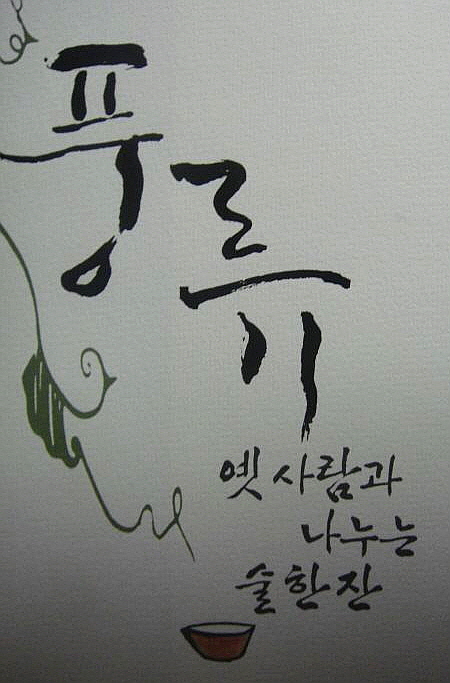 풍류
옛사람과
나누는
술한잔